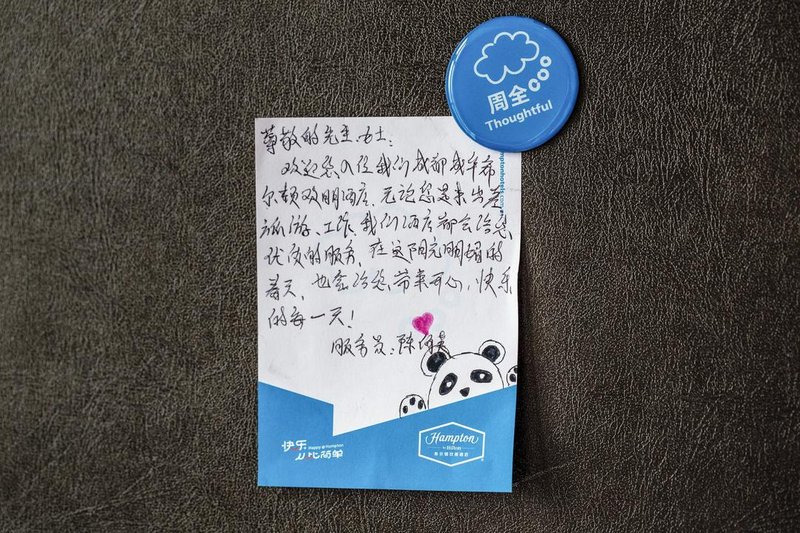 周全
Thoughtful
尊敬的先生、女士:
欢迎您入住我们成都成华希
尔顿欢朋酒店，无论您是来出差
旅游、工作，我们酒店都会给您
优质的服务，在这阳光明媚的
春天，也会给您带来开心，快乐
的每一天!
服务员:陈
快乐 Happy@Hampton
从此简单
Hampton
by Hilton
希尔顿欢朋酒店